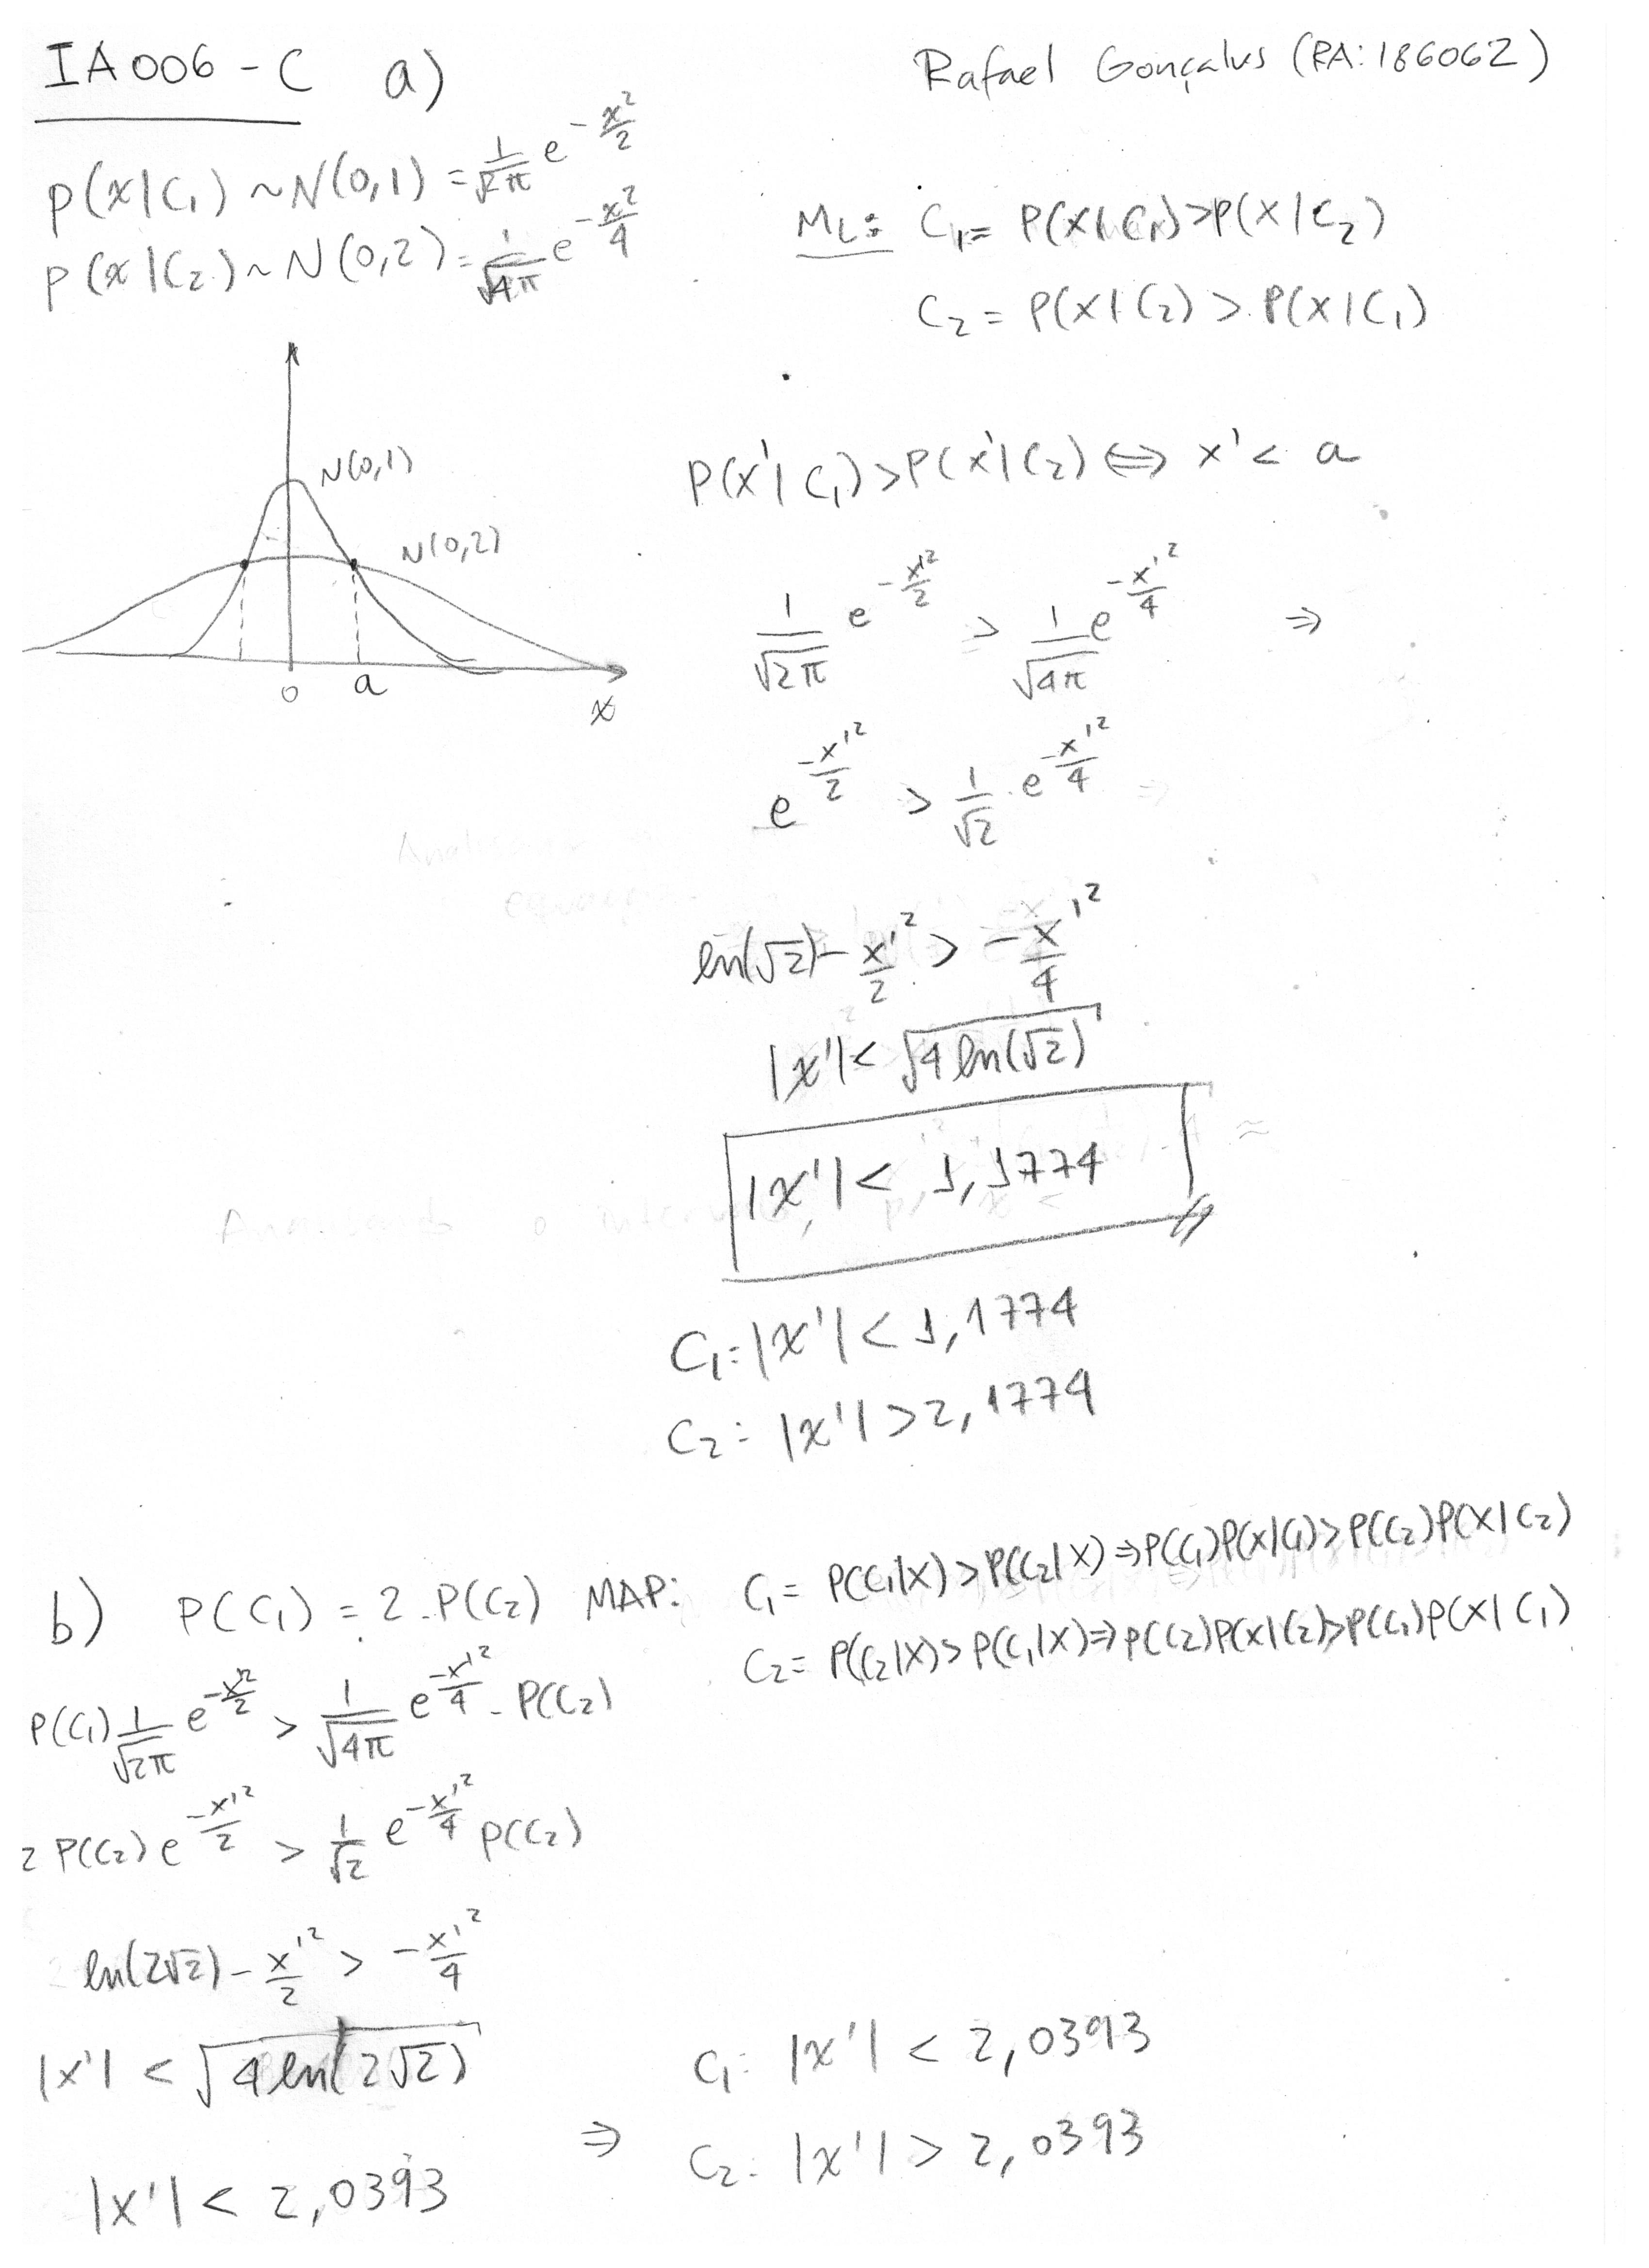 IA006 - C a) Rafael Gonçalves (RA: 186062)
p(x|C₁) ~ N(0,1) = 1/√2π e^(-x²/2)
p(x|C₂) ~ N(0,2) = 1/√4π e^(-x²/4)
ML: C₁ = P(x|C₁) > P(x|C₂)
C₂ = P(x|C₂) > P(x|C₁)
N(0,1)
N(0,2)
0 a x
P(x'|C₁) > P(x'|C₂) ⇔ x' < a
1/√2π e^(-x'²/2) > 1/√4π e^(-x'²/4) ⇒
e^(-x'²/2) > 1/√2 · e^(-x'²/4)
ln(√2) - x'²/2 > -x'²/4
|x'| < √(4 ln(√2))
|x'| < 1,1774
C₁ = |x'| < 1,1774
C₂ = |x'| > 2,1774
b) P(C₁) = 2 . P(C₂) MAP: C₁ = P(C₁|x) > P(C₂|x) ⇒ P(C₁)P(x|C₁) > P(C₂)P(x|C₂)
C₂ = P(C₂|x) > P(C₁|x) ⇒ P(C₂)P(x|C₂) > P(C₁)P(x|C₁)
P(C₁) 1/√2π e^(-x'²/2) > 1/√4π e^(-x'²/4) . P(C₂)
2 P(C₂) e^(-x'²/2) > 1/√2 e^(-x'²/4) P(C₂)
ln(2√2) - x'²/2 > -x'²/4
|x'| < √(4 ln(2√2))
|x'| < 2,0393
⇒ C₁: |x'| < 2,0393
C₂: |x'| > 2,0393